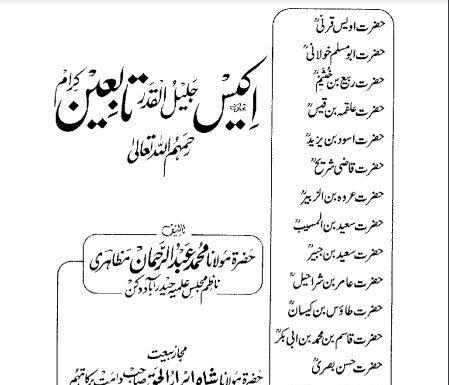 حضرت اویس قرنیؒ
حضرت ابو مسلم خولانیؒ
حضرت ربیع بن خُثیمؒ
حضرت علقمہ بن قیسؒ
حضرت اسود بن یزیدؒ
حضرت قاضی شریحؒ
حضرت عروہ بن الزبیرؒ
حضرت سعید بن المسیبؒ
حضرت سعید بن جبیرؒ
حضرت عامر بن شراحیلؒ
حضرت طاؤس بن کیسانؒ
حضرت قاسم بن محمد بن ابی بکرؒ
حضرت حسن بصریؒ
اکیس جلیل القدر تابعین کرام
رحمہم اللہ تعالیٰ
تالیف
حضرۃ مولانا محمد عبد الرحمان مظاہری
ناظم مجلس علمیہ حیدرآباد دکن
مجاز بیعت
حضرۃ مولانا شاہ ابرار الحق صاحب دامت برکاتہم